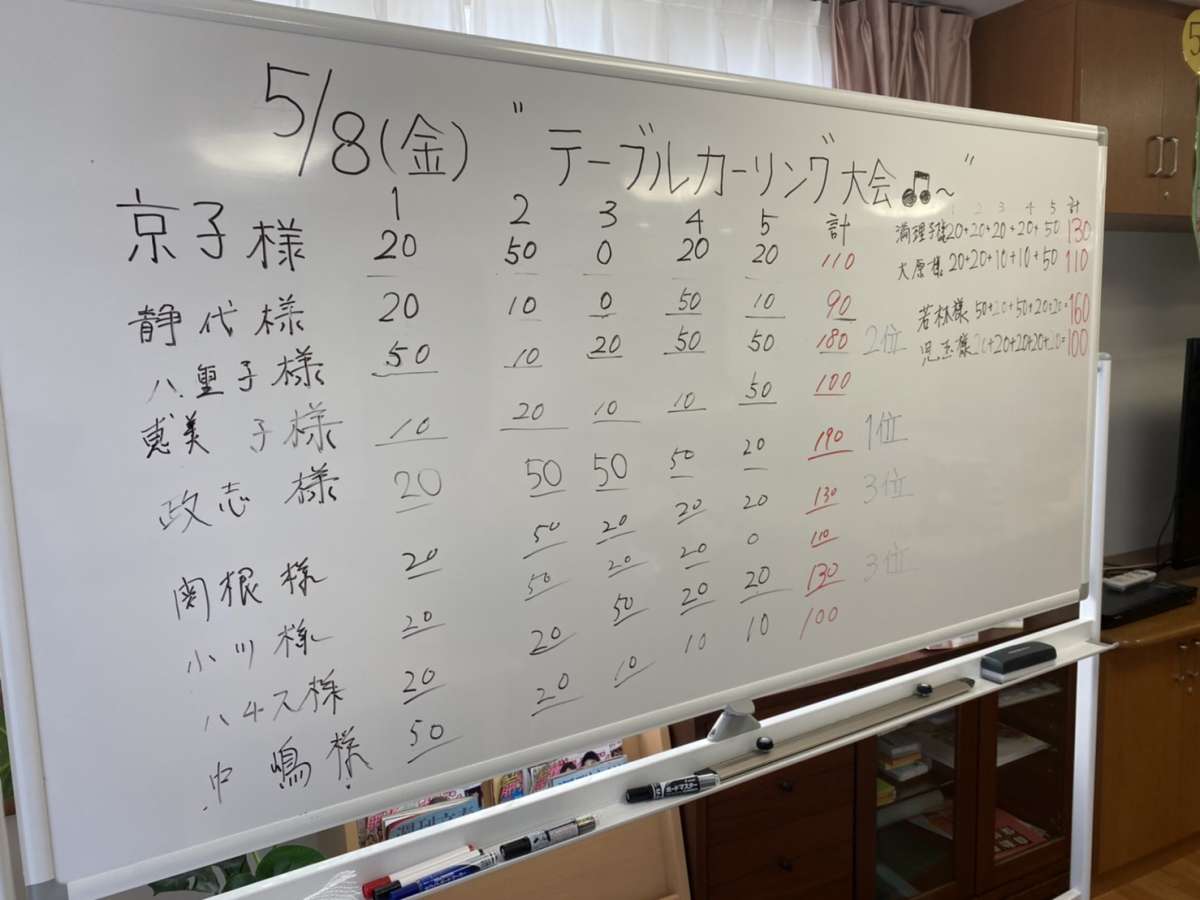 5/8(金) "テーブルカーリング大会♫~"
1 2 3 4 5 計
京子様 20 50 0 20 20 110
静代様 20 10 0 50 10 90
八重子様 50 10 20 50 50 180 2位
恵美子様 10 20 10 10 50 100
政志様 20 50 50 50 20 190 1位
関根様 20 50 20 20 20 130 3位
小川様 20 50 20 20 0 110
ハキス様 20 20 50 20 20 130 3位
中嶋様 50 20 10 10 10 100
1 2 3 4 5 計
満理子様 20+20+20+20+50 130
大原様 20+20+10+10+50 110
若林様 50+20+50+20+20= 160
児玉様 20+20+20+20+20= 100
ボードマスター
5